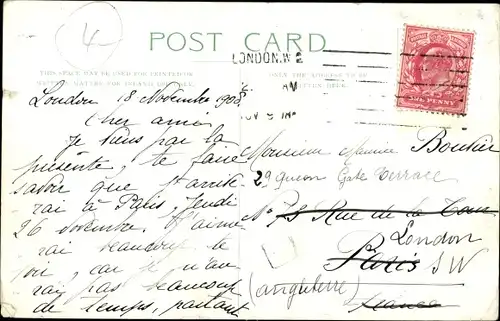 4
POST CARD
LONDON. W 2
AM
THIS SPACE MAY BE USED FOR COMMUNICATION
ONLY THE ADDRESS TO BE
WRITTEN HERE.
PENNY
London 18 Novembre 1908.
Cher ami
Je viens par la
présente, te faire
savoir que j'arrive-
rai à Paris, Jeudi
26 Novembre. J'aime
rai beaucoup te
voir, car je n'au
rai pas beaucoup
de temps, partant
Monsieur Maurice Boutier
29 Gate Terrace
No 75 Rue de la Tour
London
Paris SW
(Angleterre)
France